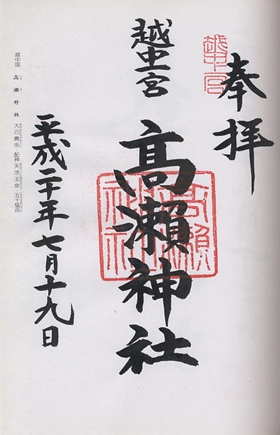 奉拝
越中一宮
越中一宮
高瀬神社
高瀬神社
平成二十年七月十九日
越中国
高瀬神社